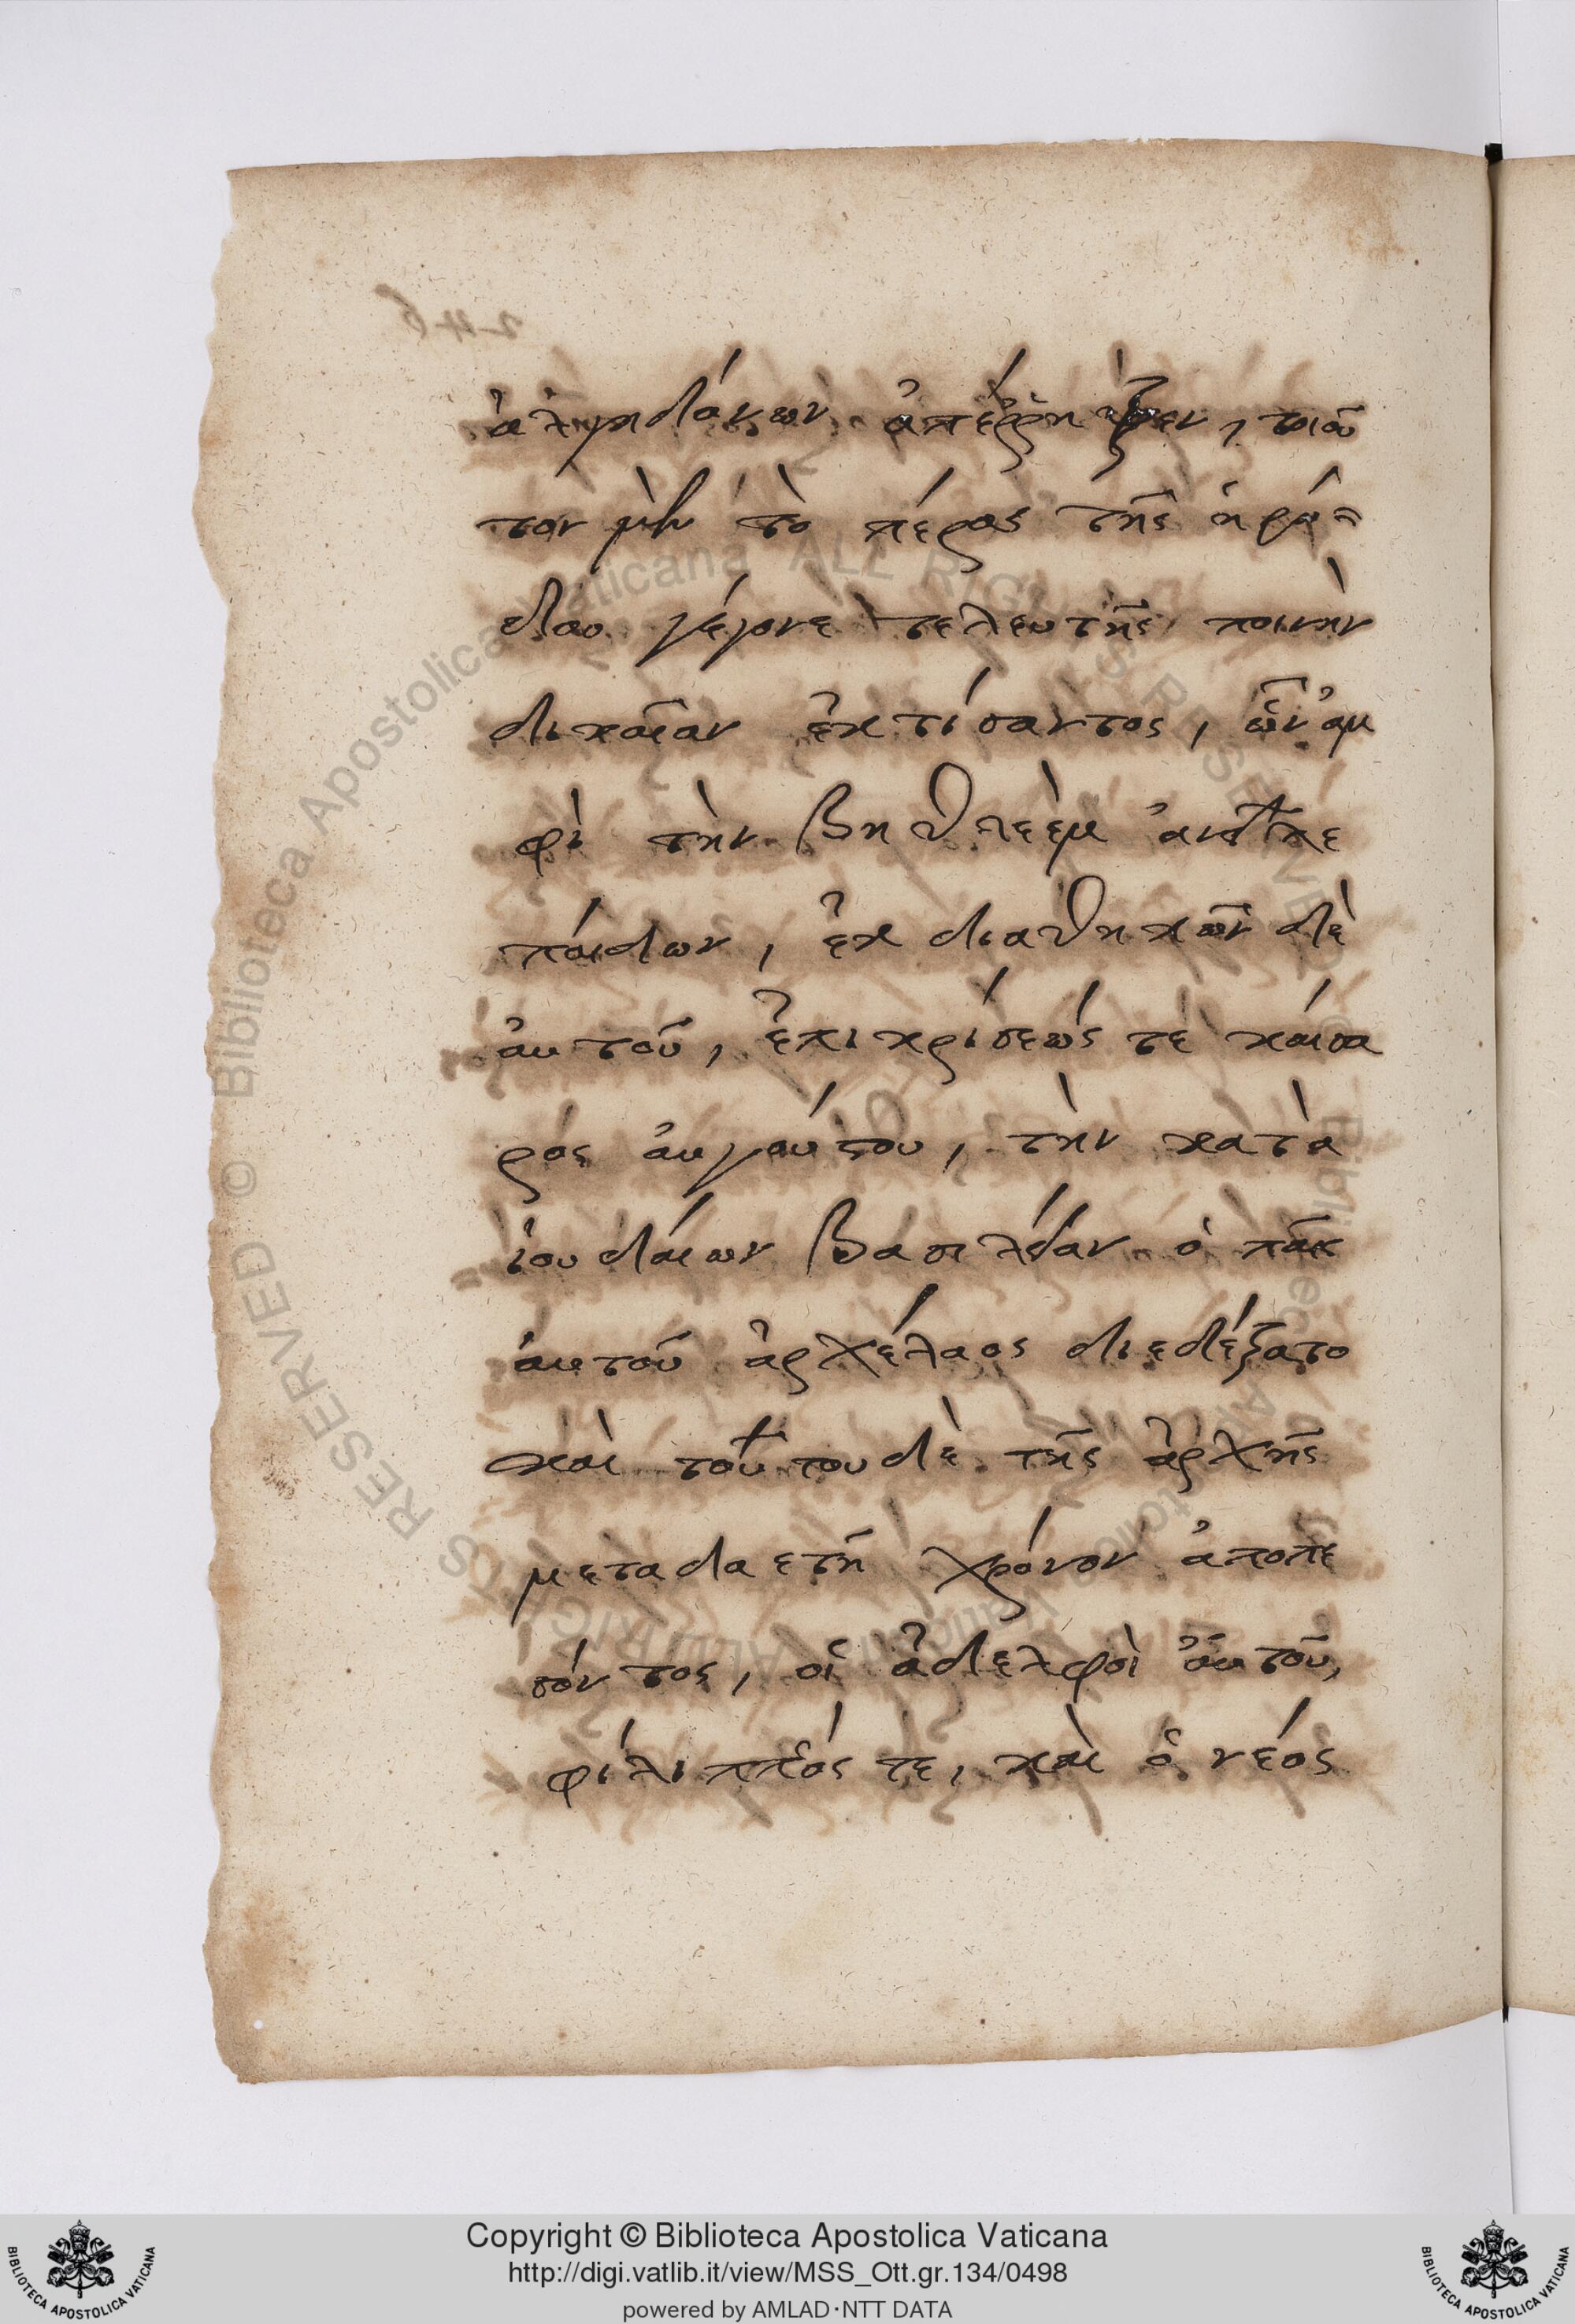 ἀλγηδόνων ἀπέῤῥηξεν, τοιοῦ
τον μὲν τὸ πέρας τῆς ἡρώ-
δου γέγονε τελευτῆς ποινὴν
δικαῖαν ἐκτίσαντος, ὧν ἀμ
φὶ τὴν βηθλεὲμ ἀνεῖλε
παίδων, ἐκ διαθηκῶν δὲ
αὐτοῦ, ἐπικρίσεώς τὲ καίσα
ρος αὐγούστου, τὴν κατὰ
ἰουδαίων βασιλείαν ὁ παῖς
αὐτοῦ ἀρχέλαος διεδέξατο
καὶ τούτου δὲ τῆς ἀρχῆς
μεταδαετῆ χρόνον ἀποπε
σόντος, οἱ ἀδελφοὶ αὐτοῦ,
φίλιππός τε, καὶ ὁ νέος
246
Copyright © Biblioteca Apostolica Vaticana
http://digi.vatlib.it/view/MSS_Ott.gr.134/0498
powered by AMLAD·NTT DATA
BIBLIOTECA APOSTOLICA VATICANA
BIBLIOTECA APOSTOLICA VATICANA